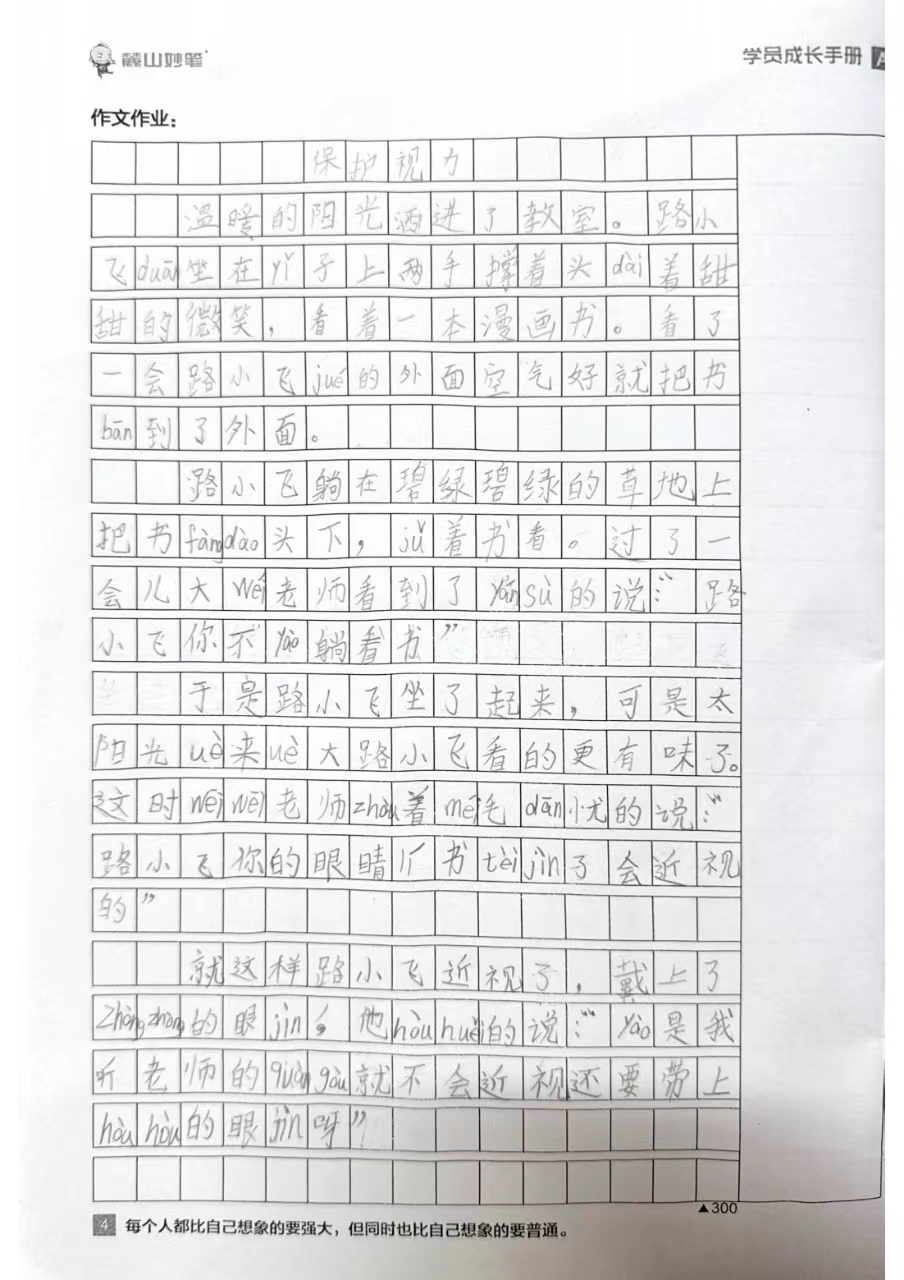 麓山妙笔
学员成长手册 A
作文作业：
保护视力
温暖的阳光洒进了教室。路小
飞duān坐在yǐ子上两手撑着头dài着甜
甜的微笑，看着一本漫画书。看了
一会路小飞jué的外面空气好就把书
bān到了外面。
路小飞躺在碧绿碧绿的草地上
把书fàngdào头下，jǔ着书看。过了一
会儿大wěi老师看到了yánsù的说：“路
小飞你不yào躺看书”
于是路小飞坐了起来，可是太
阳光uè来uè大路小飞看的更有味了。
这时wěiwěi老师zhòu着méi毛dān忧的说：“
路小飞你的眼睛儿书tèijìn了会近视
的”
就这样路小飞近视了，戴上了
zhòngzhòng的眼jìn，他hòuhuěi的说：“yào是我
听老师的quàngàu就不会近视还要带上
hòuhòu的眼jìn呀”
▲300
4 每个人都比自己想象的要强大，但同时也比自己想象的要普通。